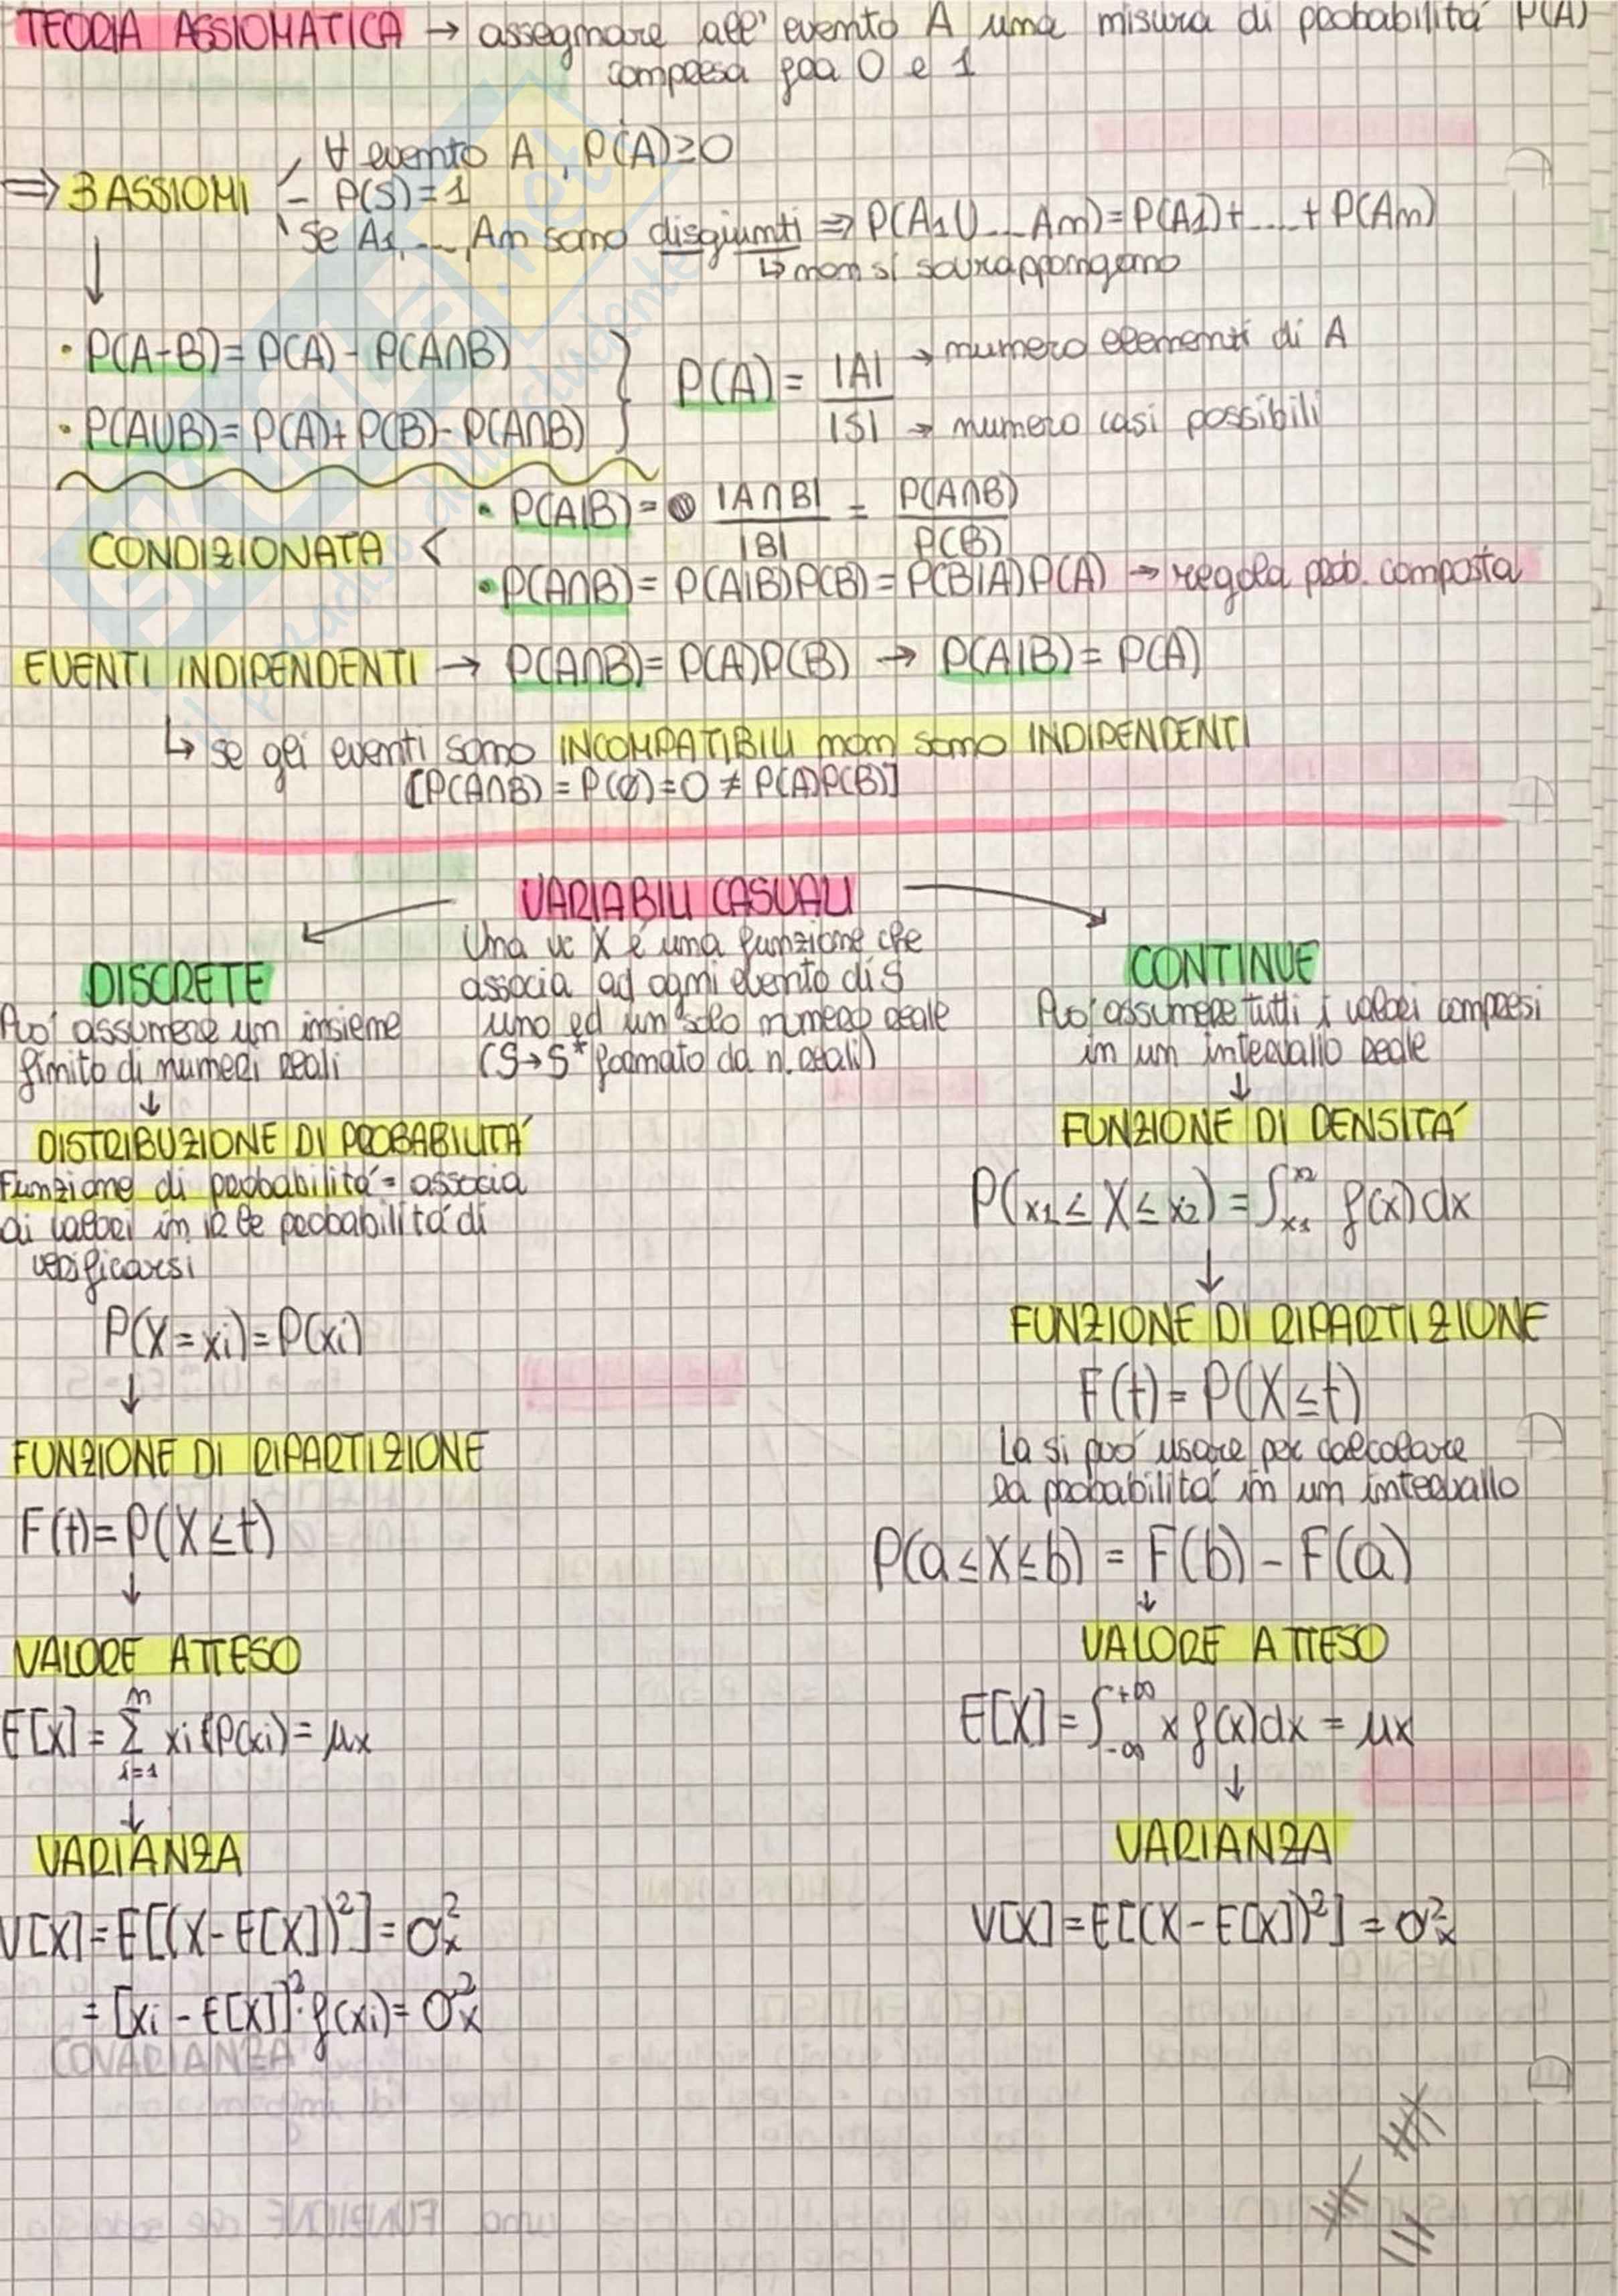 TEORIA ASSIOMATICA → assegnare all' evento A una misura di probabilitá P(A)
compresa fra 0 e 1
⇒ 3 ASSIOMI
∀ evento A, P(A)≥0
- P(S)=1
Se A1, ..., An sono disgiunti ⇒ P(A1∪...An)=P(A1)+....+P(An)
↳ non si sovrappongono
↓
• P(A-B)= P(A)- P(A∩B)
• P(A∪B)= P(A)+P(B)-P(A∩B)
P(A)= |A| / |S|
→ numero elementi di A
→ numero casi possibili
CONDIZIONATA <
• P(A|B)= |A∩B| / |B| = P(A∩B) / P(B)
• P(A∩B)= P(A|B)P(B)= P(B|A)P(A) → regola prob. composta
EVENTI INDIPENDENTI → P(A∩B)= P(A)P(B) → P(A|B)= P(A)
↳ se gli eventi sono INCOMPATIBILI non sono INDIPENDENTI
[P(A∩B)=P(∅)=0 ≠ P(A)P(B)]
VARIABILI CASUALI
Una vc X é una funzione che
associa ad ogni evento di S
uno ed un solo numero reale
(S→S* formato da n. reali)
DISCRETE
Puo' assumere un insieme
finito di numeri reali
↓
DISTRIBUZIONE DI PROBABILITA'
Funzione di probabilitá= associa
ai valori in R le probabilitá di
verificarsi
P(X=xi)=P(xi)
↓
FUNZIONE DI RIPARTIZIONE
F(t)=P(X≤t)
↓
VALORE ATTESO
E[X]= Σ n i=1 xi P(xi)= μx
↓
VARIANZA
V[X]=E[(X-E[X])²]=σ²x
= [xi - E[X]]²·f(xi)= σ²x
CONTINUE
Puo' assumere tutti i valori compresi
in un intervallo reale
↓
FUNZIONE DI DENSITA'
P(x1≤X≤x2)=∫x1 x2 f(x)dx
↓
FUNZIONE DI RIPARTIZIONE
F(t)=P(X≤t)
La si puó usare per calcolare
la probabilitá in un intervallo
P(a≤X≤b) = F(b) - F(a)
↓
VALORE ATTESO
E[X]=∫-∞ +∞ x f(x)dx = μx
↓
VARIANZA
V[X]=E[(X-E[X])²] = σ²x
COVARIANZA